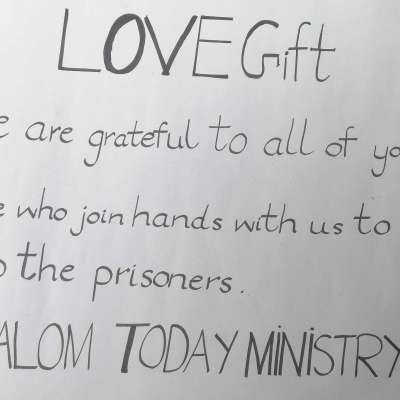 LOVE Gift
e are grateful to all of yo
e who join hands with us to
o the prisoners.
ALOM TODAY MINISTRY